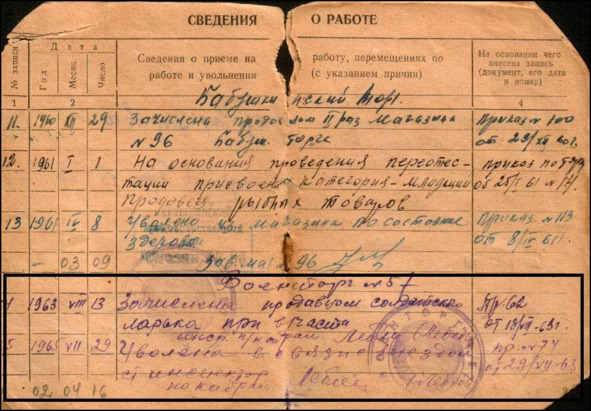 СВЕДЕНИЯ О РАБОТЕ
№ записи
Дата
Год
Месяц
Число
Сведения о приеме на работу, перемещениях по
работе и увольнении (с указанием причин)
На основании чего
внесена запись
(документ, его дата
и номер)
1 2 3 4
Бабушкинский Торг.
11. 1960 XII 29 Зачислена продавцом II раз. Магазина Приказ № 100
№ 96 Бабуш. торга от 29/XII 60г.
12. 1961 I 1 На основания проведения переоттес- приказ по
тации присвоена категория - младший от 25/I 61 № 14
продавец рыбных товаров
13 1961 IV 8 Уволена из магазина по состояние Приказ № 113
здоровя от 8/IV 61г.
— 03 09 Зав. маг. № 96
Военторг № 57
4 1963 VIII 13 Зачислена продавцом солдатского Пр 62
ларька при в/части
инсп. п/кадрам
5 1965 VII 29 Уволена в связи с выездом пр. № 74
ст инспектор
по кадрам
02 04 16